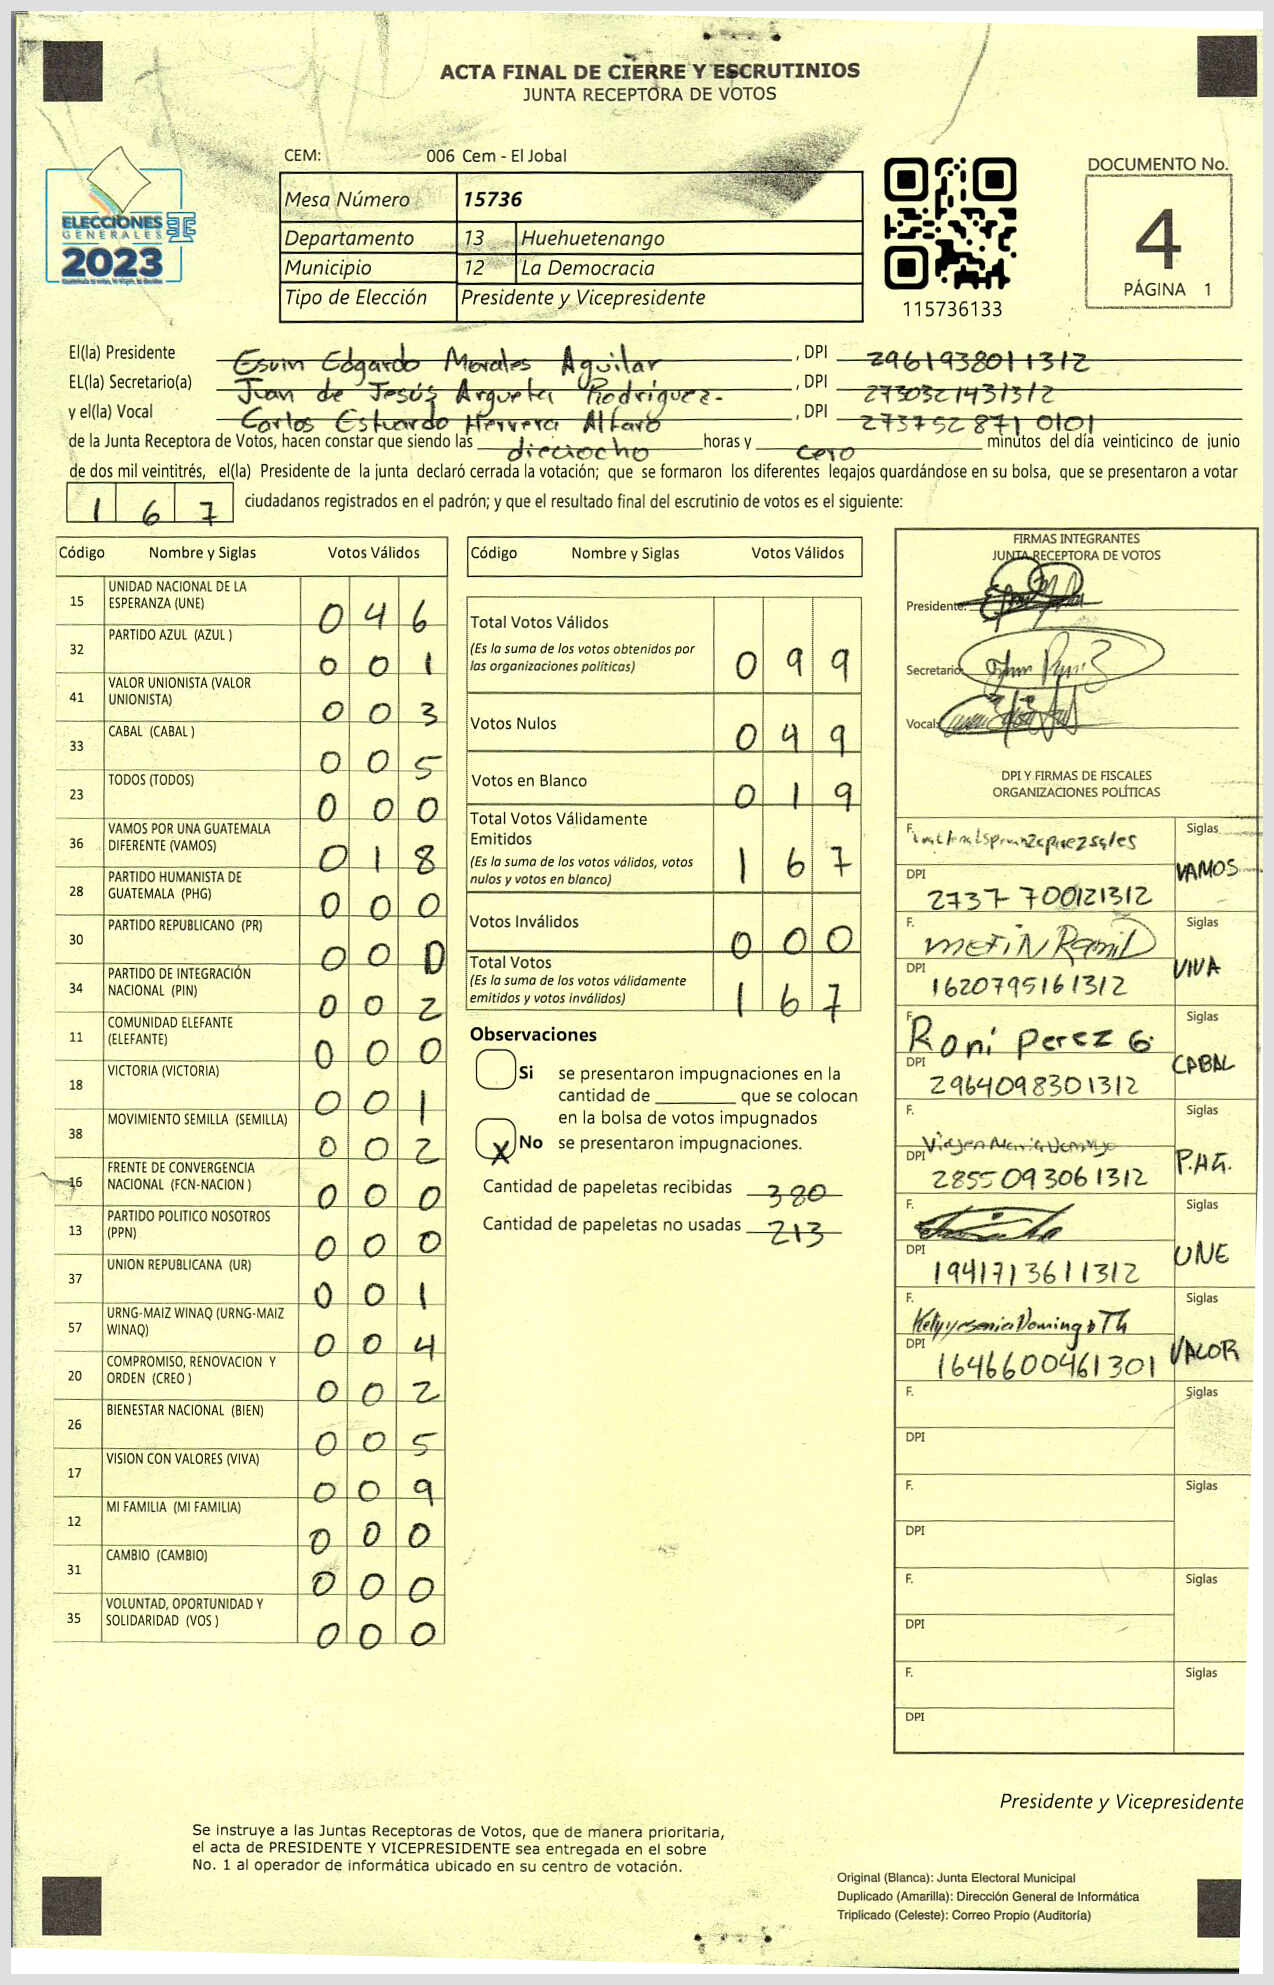 ACTA FINAL DE CIERRE Y ESCRUTINIOS
JUNTA RECEPTORA DE VOTOS
CEM: 006 Cem - El Jobal
Mesa Número 15736
Departamento 13 Huehuetenango
Municipio 12 La Democracia
Tipo de Elección Presidente y Vicepresidente
ELECCIONES
GENERALES
2023
115736133
DOCUMENTO No.
4
PÁGINA 1
El(la) Presidente Esvin Edgardo Morales Aguilar , DPI 2961938011312
EL(la) Secretario(a) Juan de Jesús Argueta Rodríguez. , DPI 2730321431312
y el(la) Vocal Carlos Estuardo Herrera Alfaro , DPI 2737528710101
de la Junta Receptora de Votos, hacen constar que siendo las dieciocho horas y cero minutos del día veinticinco de junio
de dos mil veintitrés, el(la) Presidente de la junta declaró cerrada la votación; que se formaron los diferentes legajos quardándose en su bolsa, que se presentaron a votar
167 ciudadanos registrados en el padrón; y que el resultado final del escrutinio de votos es el siguiente:
Código Nombre y Siglas Votos Válidos
15 UNIDAD NACIONAL DE LA ESPERANZA (UNE) 046
32 PARTIDO AZUL (AZUL ) 001
41 VALOR UNIONISTA (VALOR UNIONISTA) 003
33 CABAL (CABAL ) 005
23 TODOS (TODOS) 000
36 VAMOS POR UNA GUATEMALA DIFERENTE (VAMOS) 018
28 PARTIDO HUMANISTA DE GUATEMALA (PHG) 000
30 PARTIDO REPUBLICANO (PR) 000
34 PARTIDO DE INTEGRACIÓN NACIONAL (PIN) 002
11 COMUNIDAD ELEFANTE (ELEFANTE) 000
18 VICTORIA (VICTORIA) 001
38 MOVIMIENTO SEMILLA (SEMILLA) 002
16 FRENTE DE CONVERGENCIA NACIONAL (FCN-NACION ) 000
13 PARTIDO POLITICO NOSOTROS (PPN) 000
37 UNION REPUBLICANA (UR) 001
57 URNG-MAIZ WINAQ (URNG-MAIZ WINAQ) 004
20 COMPROMISO, RENOVACION Y ORDEN (CREO ) 002
26 BIENESTAR NACIONAL (BIEN) 005
17 VISION CON VALORES (VIVA) 009
12 MI FAMILIA (MI FAMILIA) 000
31 CAMBIO (CAMBIO) 000
35 VOLUNTAD, OPORTUNIDAD Y SOLIDARIDAD (VOS ) 000
Código Nombre y Siglas Votos Válidos
Total Votos Válidos 099
(Es la suma de los votos obtenidos por
las organizaciones políticas)
Votos Nulos 049
Votos en Blanco 019
Total Votos Válidamente
Emitidos 167
(Es la suma de los votos válidos, votos
nulos y votos en blanco)
Votos Inválidos 000
Total Votos 167
(Es la suma de los votos válidamente
emitidos y votos inválidos)
Observaciones
Si se presentaron impugnaciones en la
cantidad de ________ que se colocan
en la bolsa de votos impugnados
X No se presentaron impugnaciones.
Cantidad de papeletas recibidas 380
Cantidad de papeletas no usadas 213
FIRMAS INTEGRANTES
JUNTA RECEPTORA DE VOTOS
Presidente:
Secretario
Vocal:
DPI Y FIRMAS DE FISCALES
ORGANIZACIONES POLÍTICAS
F. Siglas
DPI 2737 700121312 VAMOS
F. Siglas
DPI 1620795161312 VIVA
F. Roni Perez G. Siglas
DPI 2964098301312 CABAL
F. Siglas
DPI 2855093061312 P.H.G.
F. Siglas
DPI 1941713611312 UNE
F. Siglas
DPI 1646600461301 VALOR
F. Siglas
DPI
F. Siglas
DPI
F. Siglas
DPI
F. Siglas
DPI
Presidente y Vicepresidente
Se instruye a las Juntas Receptoras de Votos, que de manera prioritaria,
el acta de PRESIDENTE Y VICEPRESIDENTE sea entregada en el sobre
No. 1 al operador de informática ubicado en su centro de votación.
Original (Blanca): Junta Electoral Municipal
Duplicado (Amarilla): Dirección General de Informática
Triplicado (Celeste): Correo Propio (Auditoría)